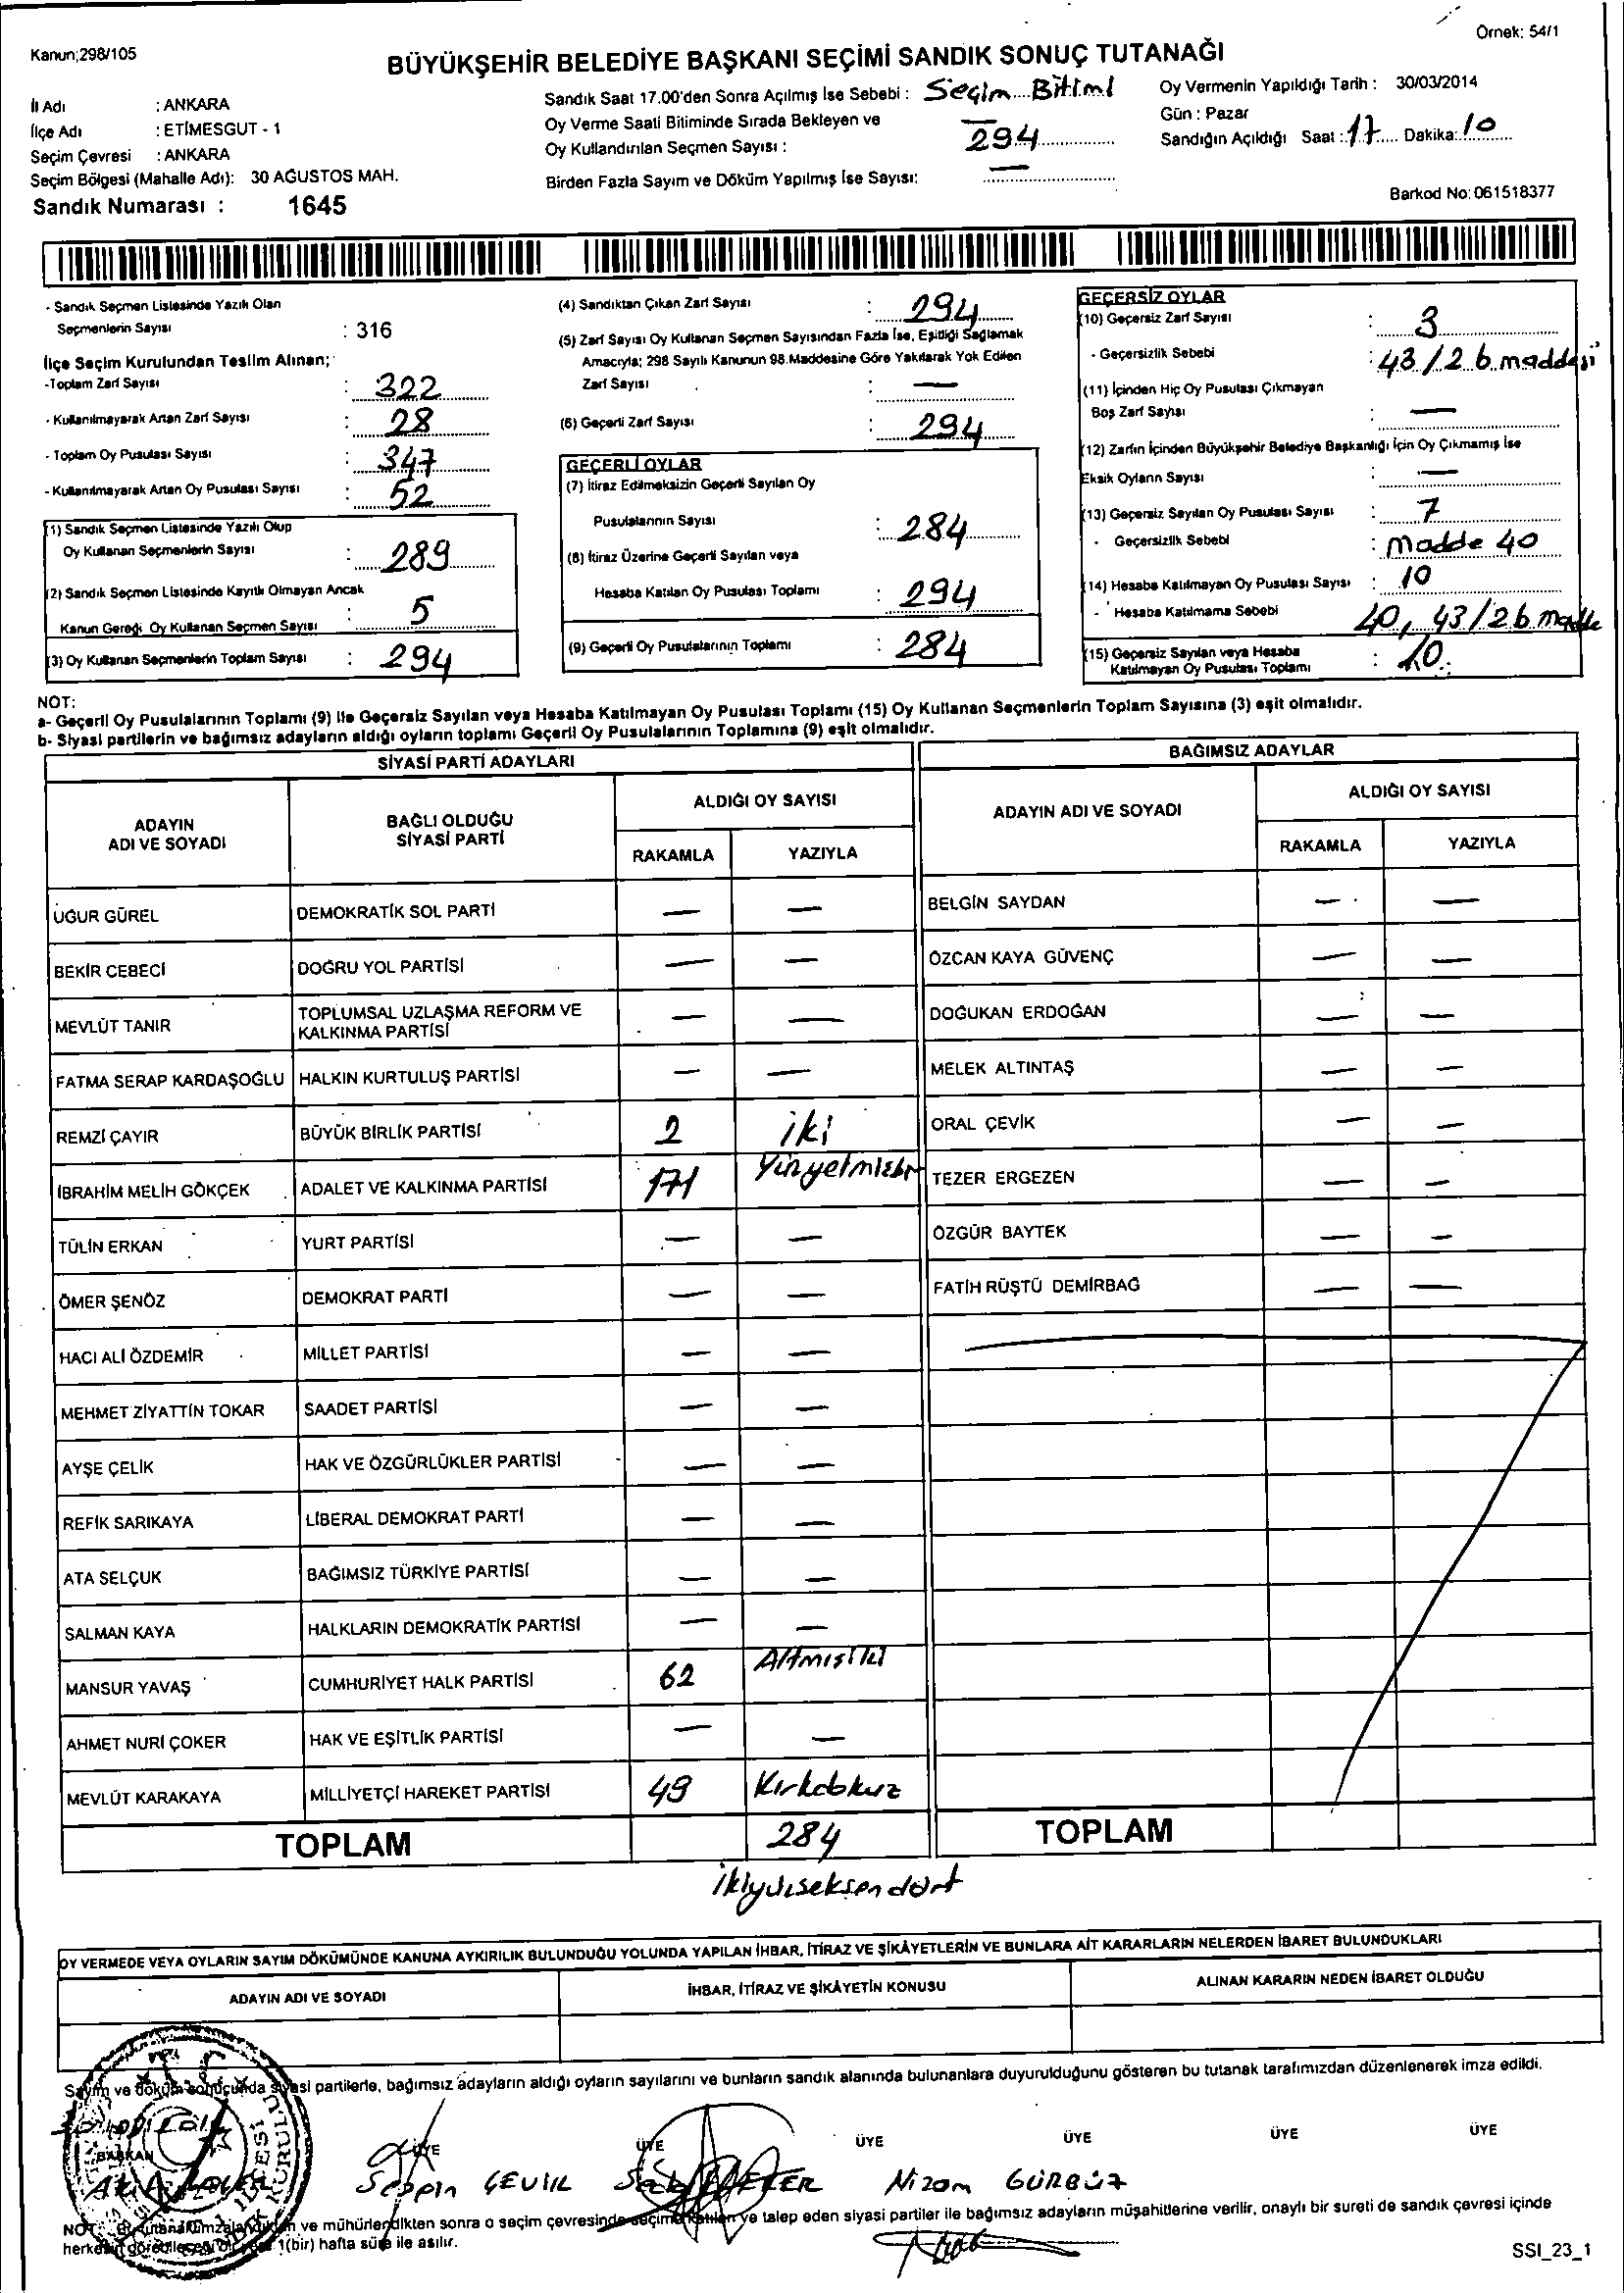 Örnek: 54/1
Kanun;298/105
BÜYÜKŞEHİR BELEDİYE BAŞKANI SEÇİMİ SANDIK SONUÇ TUTANAĞI
İl Adı : ANKARA
İlçe Adı : ETİMESGUT - 1
Seçim Çevresi : ANKARA
Seçim Bölgesi (Mahalle Adı): 30 AĞUSTOS MAH.
Sandık Numarası : 1645
Sandık Saat 17.00'den Sonra Açılmış İse Sebebi : Seçim Bitimi
Oy Verme Saati Bitiminde Sırada Bekleyen ve
Oy Kullandırılan Seçmen Sayısı : 294
Birden Fazla Sayım ve Döküm Yapılmış İse Sayısı: —
Oy Vermenin Yapıldığı Tarih : 30/03/2014
Gün : Pazar
Sandığın Açıldığı Saat : 17 Dakika: 10
Barkod No: 061518377
- Sandık Seçmen Listesinde Yazılı Olan
Seçmenlerin Sayısı : 316
İlçe Seçim Kurulundan Teslim Alınan;
-Toplam Zarf Sayısı : 322
- Kullanılmayarak Artan Zarf Sayısı : 28
- Toplam Oy Pusulası Sayısı : 347
- Kullanılmayarak Artan Oy Pusulası Sayısı : 52
(1) Sandık Seçmen Listesinde Yazılı Olup
Oy Kullanan Seçmenlerin Sayısı : 289
(2) Sandık Seçmen Listesinde Kayıtlı Olmayan Ancak
Kanun Gereği Oy Kullanan Seçmen Sayısı : 5
(3) Oy Kullanan Seçmenlerin Toplam Sayısı : 294
(4) Sandıktan Çıkan Zarf Sayısı : 294
(5) Zarf Sayısı Oy Kullanan Seçmen Sayısından Fazla İse, Eşitliği Sağlamak
Amacıyla; 298 Sayılı Kanunun 98.Maddesine Göre Yakılarak Yok Edilen
Zarf Sayısı : —
(6) Geçerli Zarf Sayısı : 294
GEÇERLİ OYLAR
(7) İtiraz Edilmeksizin Geçerli Sayılan Oy
Pusulalarının Sayısı : 284
(8) İtiraz Üzerine Geçerli Sayılan veya
Hesaba Katılan Oy Pusulası Toplamı : 294
(9) Geçerli Oy Pusulalarının Toplamı : 284
GEÇERSİZ OYLAR
(10) Geçersiz Zarf Sayısı : 3
- Geçersizlik Sebebi : 43/2 b maddesi
(11) İçinden Hiç Oy Pusulası Çıkmayan
Boş Zarf Sayısı : —
(12) Zarfın İçinden Büyükşehir Belediye Başkanlığı İçin Oy Çıkmamış İse
Eksik Oyların Sayısı : —
(13) Geçersiz Sayılan Oy Pusulası Sayısı : 7
- Geçersizlik Sebebi : Madde 40
(14) Hesaba Katılmayan Oy Pusulası Sayısı : 10
- Hesaba Katılmama Sebebi 40, 43/2 b madde
(15) Geçersiz Sayılan veya Hesaba
Katılmayan Oy Pusulası Toplamı : 10
NOT:
a- Geçerli Oy Pusulalarının Toplamı (9) ile Geçersiz Sayılan veya Hesaba Katılmayan Oy Pusulası Toplamı (15) Oy Kullanan Seçmenlerin Toplam Sayısına (3) eşit olmalıdır.
b- Siyasi partilerin ve bağımsız adayların aldığı oyların toplamı Geçerli Oy Pusulalarının Toplamına (9) eşit olmalıdır.
SİYASİ PARTİ ADAYLARI
ADAYIN ADI VE SOYADI BAĞLI OLDUĞU SİYASİ PARTİ ALDIĞI OY SAYISI
RAKAMLA YAZIYLA
UĞUR GÜREL DEMOKRATİK SOL PARTİ — —
BEKİR CEBECİ DOĞRU YOL PARTİSİ — —
MEVLÜT TANIR TOPLUMSAL UZLAŞMA REFORM VE KALKINMA PARTİSİ — —
FATMA SERAP KARDAŞOĞLU HALKIN KURTULUŞ PARTİSİ — —
REMZİ ÇAYIR BÜYÜK BİRLİK PARTİSİ 2 iki
İBRAHİM MELİH GÖKÇEK ADALET VE KALKINMA PARTİSİ 171 Yüzyetmişbir
TÜLİN ERKAN YURT PARTİSİ — —
ÖMER ŞENÖZ DEMOKRAT PARTİ — —
HACI ALİ ÖZDEMİR MİLLET PARTİSİ — —
MEHMET ZİYATTİN TOKAR SAADET PARTİSİ — —
AYŞE ÇELİK HAK VE ÖZGÜRLÜKLER PARTİSİ — —
REFİK SARIKAYA LİBERAL DEMOKRAT PARTİ — —
ATA SELÇUK BAĞIMSIZ TÜRKİYE PARTİSİ — —
SALMAN KAYA HALKLARIN DEMOKRATİK PARTİSİ — —
MANSUR YAVAŞ CUMHURİYET HALK PARTİSİ 62 Altmışiki
AHMET NURİ ÇOKER HAK VE EŞİTLİK PARTİSİ — —
MEVLÜT KARAKAYA MİLLİYETÇİ HAREKET PARTİSİ 49 Kırkdokuz
TOPLAM 284
ikiyüzseksendört
BAĞIMSIZ ADAYLAR
ADAYIN ADI VE SOYADI ALDIĞI OY SAYISI
RAKAMLA YAZIYLA
BELGİN SAYDAN — —
ÖZCAN KAYA GÜVENÇ — —
DOĞUKAN ERDOĞAN — —
MELEK ALTINTAŞ — —
ORAL ÇEVİK — —
TEZER ERGEZEN — —
ÖZGÜR BAYTEK — —
FATİH RÜŞTÜ DEMİRBAĞ — —
TOPLAM
OY VERMEDE VEYA OYLARIN SAYIM DÖKÜMÜNDE KANUNA AYKIRILIK BULUNDUĞU YOLUNDA YAPILAN İHBAR, İTİRAZ VE ŞİKÂYETLERİN VE BUNLARA AİT KARARLARIN NELERDEN İBARET BULUNDUKLARI
ADAYIN ADI VE SOYADI İHBAR, İTİRAZ VE ŞİKÂYETİN KONUSU ALINAN KARARIN NEDEN İBARET OLDUĞU
Sayım ve döküm sonucunda siyasi partilerle, bağımsız adayların aldığı oyların sayılarını ve bunların sandık alanında bulunanlara duyurulduğunu gösteren bu tutanak tarafımızdan düzenlenerek imza edildi.
BAŞKAN ÜYE ÜYE ÜYE ÜYE ÜYE ÜYE
ÇEVİK Nizam GÜRBÜZ
ve mühürlendikten sonra o seçim çevresinde seçime katılan ve talep eden siyasi partiler ile bağımsız adayların müşahitlerine verilir, onaylı bir sureti de sandık çevresi içinde
1(bir) hafta süre ile asılır.
SSI_23_1